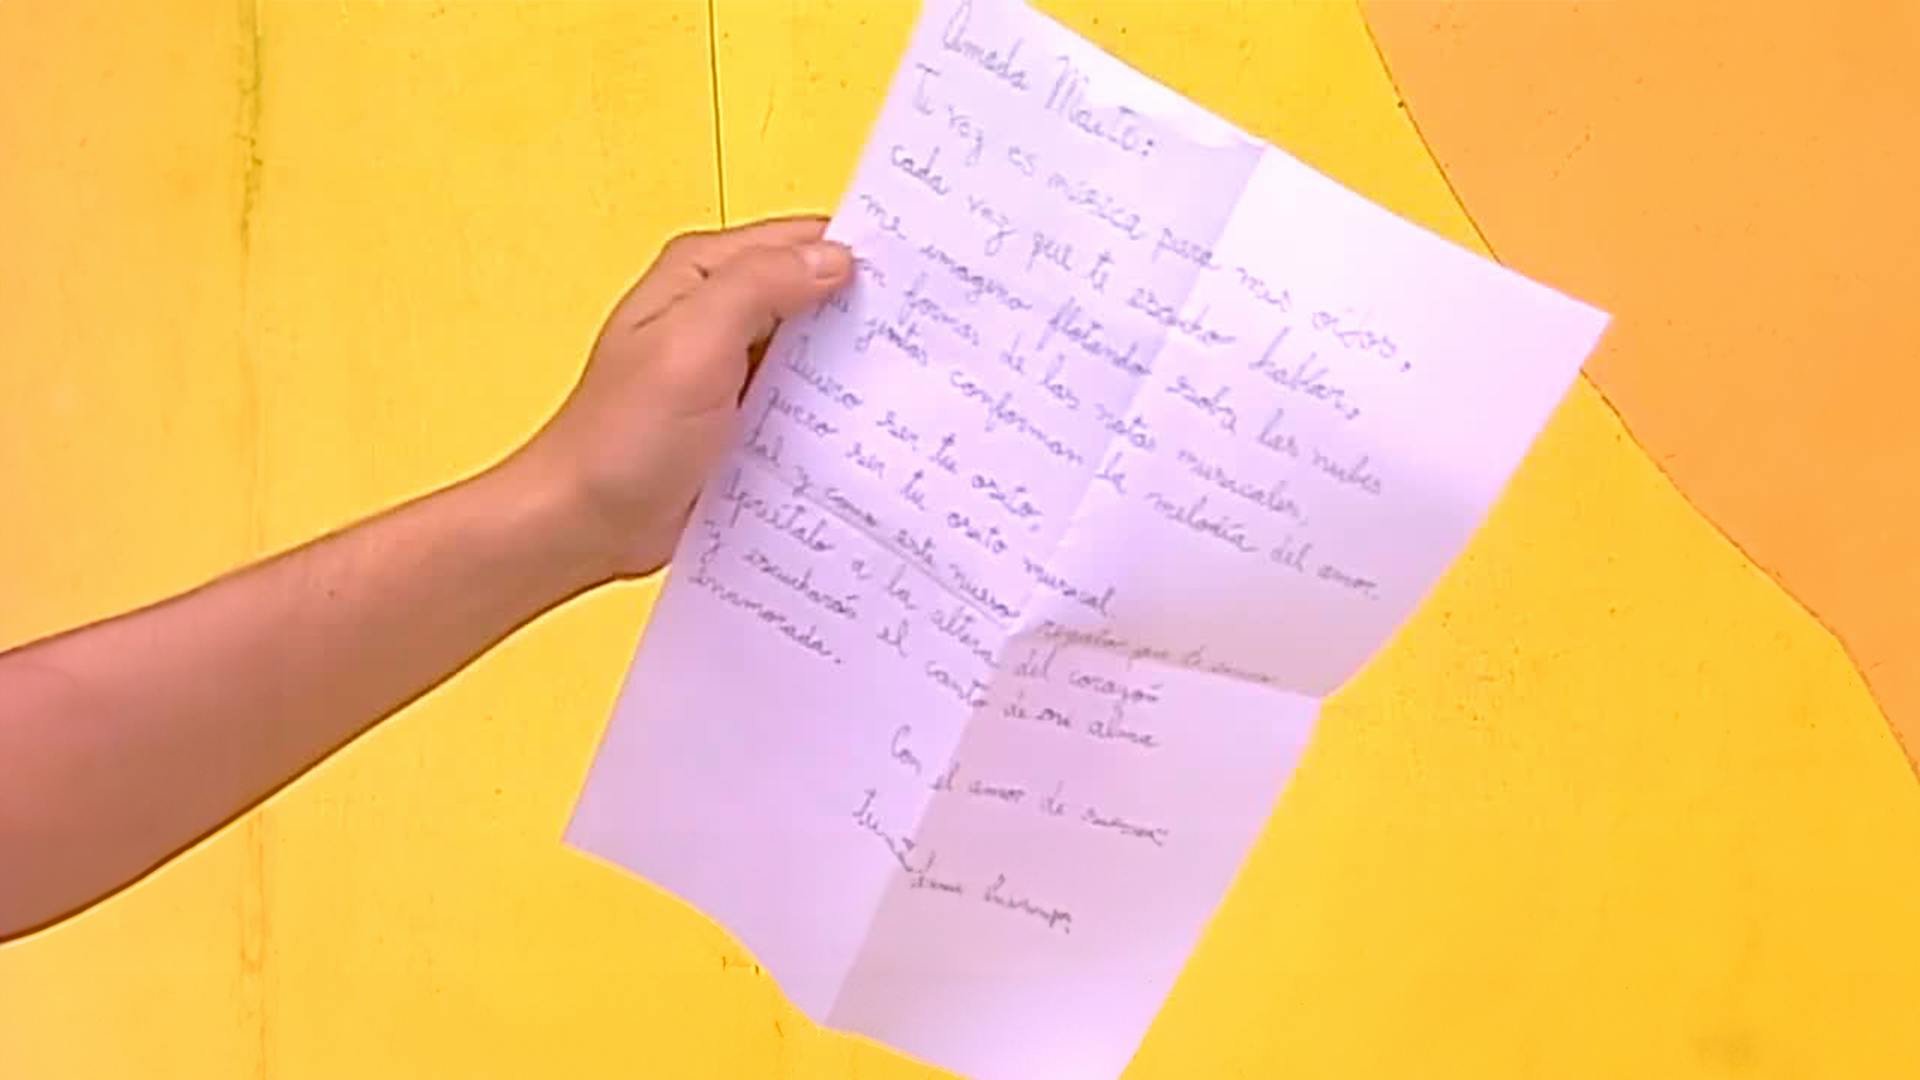 Amada Maite:
Tu voz es música para mis oídos,
cada vez que te escucho hablar,
me imagino flotando sobre las nubes
en formas de las notas musicales,
que juntas conforman la melodía del amor.
Quiero ser tu osito,
quiero ser tu osito musical
tal y como este nuevo regalo que te
Apriétalo a la altura del corazón
y escucharás el canto de mi alma
enamorada.
Con el amor de